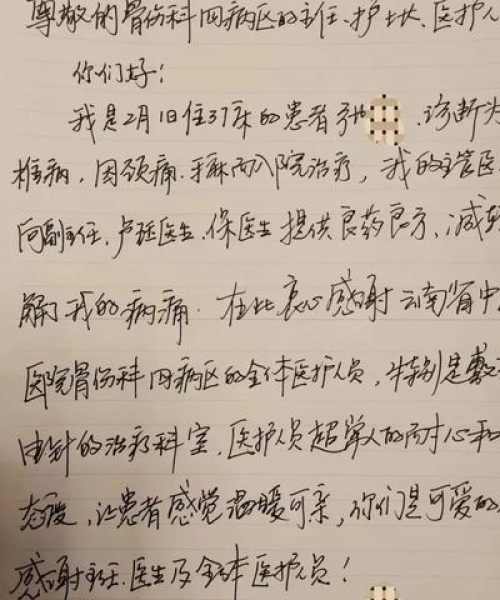 尊敬的骨伤科四病区的主任、护士长、医护人
你们好！
我是2月1日住37床的患者孙 ，诊断为
椎病，因颈痛、手麻而入院治疗，我的主管医
向副主任、卢 医生、保医生提供良药良方、减轻
解了我的病痛．在此衷心感谢云南省中
医院骨伤科四病区的全体医护人员，特别是
电针的治疗科室，医护人员超常人的耐心和
态度，让患者感觉温暖可亲，你们是可爱的
感谢主任、医生及全体医护人员！